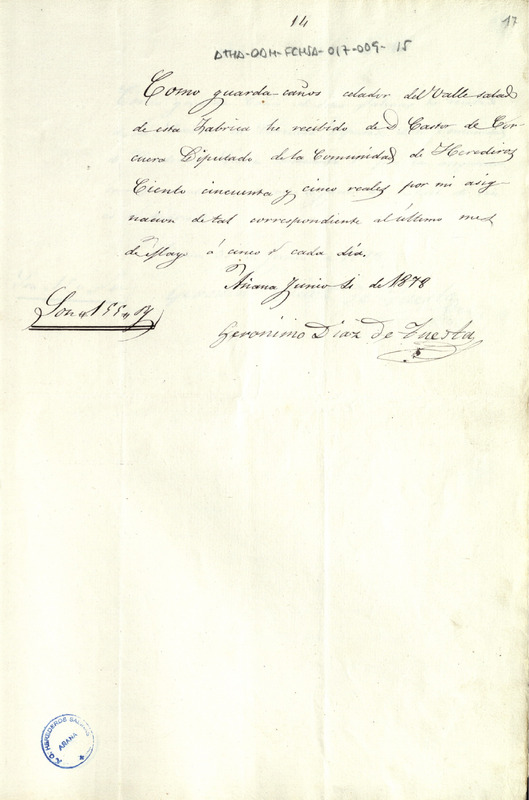 14
17
ATHA-DAH-FCHSA-017-009-15
Como guarda-caños celador del Valle salado
de esta Fabrica he recibido de D Castor de Cor
cuera Diputado de la Comunidad de Herederos
Ciento cincuenta y cinco reales por mi asig
nacion de tal correspondiente al último mes
de Mayo á cinco r cada dia.
Añana Junio 1 de 1878
Son "155" r
Geronimo Diaz de Tuesta
HEREDEROS SALINAS
AÑANA